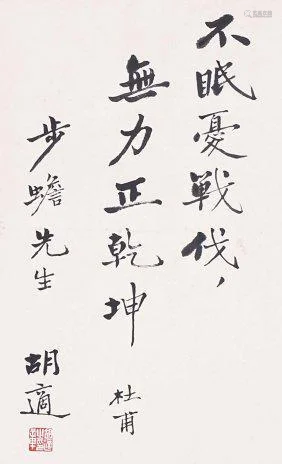 不眠憂戰伐，
無力正乾坤
杜甫
步蟾先生
胡適